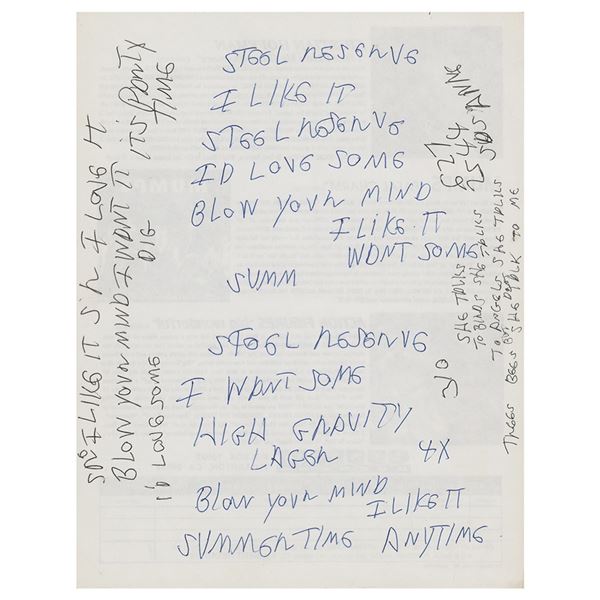 STEEL RESERVE
I LIKE IT
STEEL RESERVE
ID LOVE SOME
BLOW YOUR MIND
I LIKE IT
WANT SOME
SUMM
STEEL RESERVE
I WANT SOME
HIGH GRAVITY
LAGER
4X
BLOW YOUR MIND
I LIKE IT
SUMMERTIME ANYTIME
I LIKE IT S.R I LOVE IT
BLOW YOUR MIND I WANT IT ITS PARTY
TIME
DIG
I'D LOVE SOME
627
2544
SHE TALKS
TO BIRDS SHE TALKS
TO ANGELS SHE TALKS
TREES BEES BUT DONT
SHE TALK TO ME